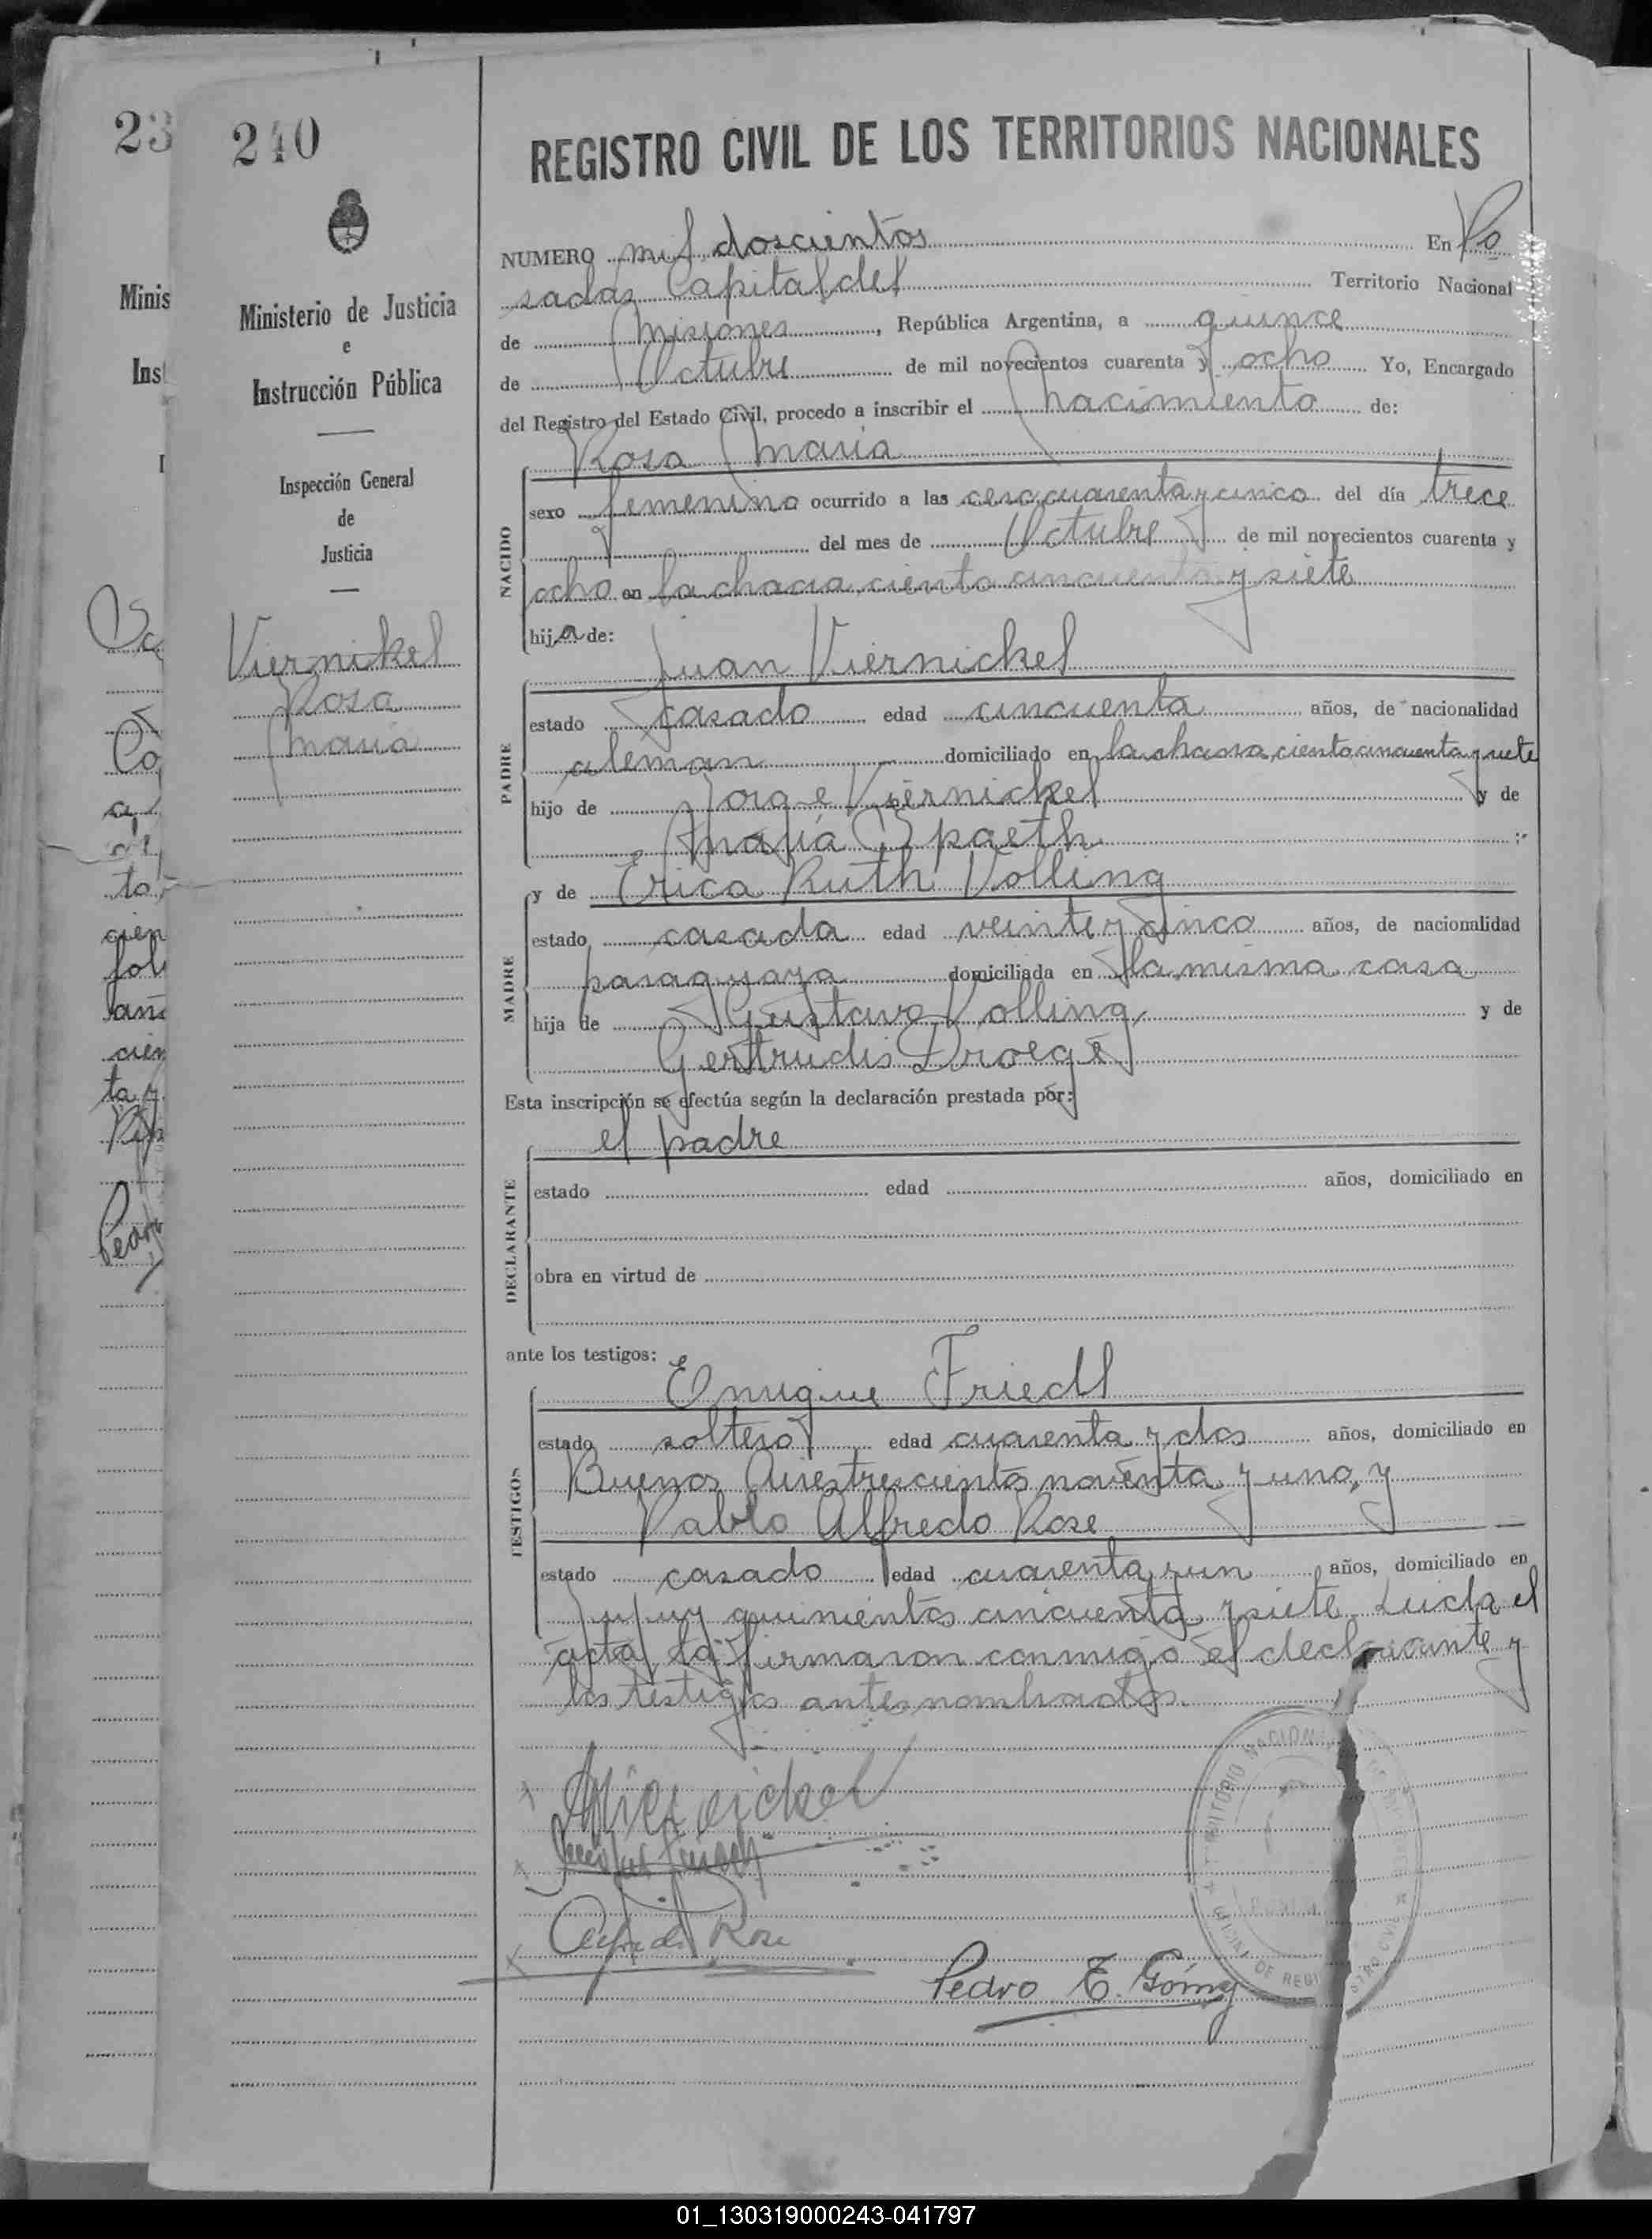 23
240
REGISTRO CIVIL DE LOS TERRITORIOS NACIONALES
Minis
Ministerio de Justicia
e
Inst
Instrucción Pública
Inspección General
de
Justicia
Viernikel
Rosa
Maria
NUMERO mil doscientos En Po
sadas Capital del Territorio Nacional
de Misiones, República Argentina, a quince
de Octubre de mil novecientos cuarenta y ocho Yo, Encargado
del Registro del Estado Civil, procedo a inscribir el nacimiento de:
Rosa Maria
NACIDO
sexo femenino ocurrido a las cero cuarenta y cinco del día trece
del mes de Octubre de mil novecientos cuarenta y
ocho en la chacra ciento cincuenta y siete
hija de:
Juan Viernickel
PADRE
estado casado edad cincuenta años, de nacionalidad
aleman domiciliado en la chacra ciento cincuenta y siete
hijo de Jorge Viernickel y de
Maria Spaeth
y de Erica Ruth Volling
MADRE
estado casada edad veinte y cinco años, de nacionalidad
paraguaya domiciliada en la misma casa
hija de Gustavo Volling y de
Gertrudis Droege
Esta inscripción se efectúa según la declaración prestada por:
el padre
DECLARANTE
estado edad años, domiciliado en
obra en virtud de
ante los testigos:
Enrique Friedl
TESTIGOS
estado soltero edad cuarenta y dos años, domiciliado en
Buenos Aires trescientos noventa y uno, y
Pablo Alfredo Rose
estado casado edad cuarenta y un años, domiciliado en
Jujuy quinientos cincuenta y siete. Leida el
acta, la firmaron conmigo el declarante y
los testigos antes nombrados.
Viernickel
Alfredo Rose
Pedro E. Gómez
01_130319000243-041797